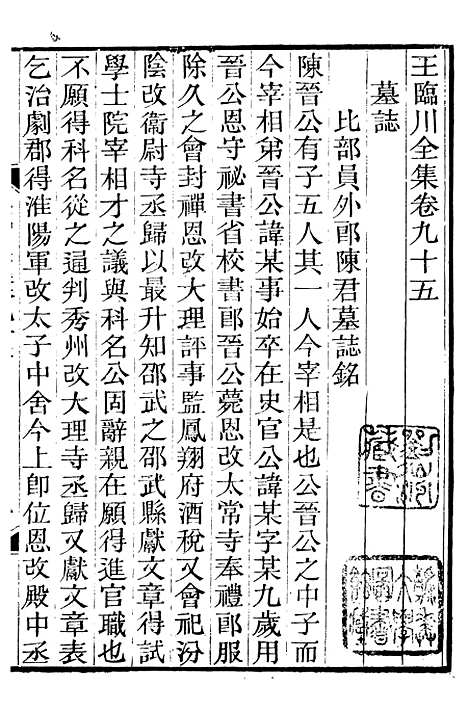 王臨川全集卷九十五
墓誌
比部員外郎陳君墓誌銘
陳晉公有子五人其一人今宰相是也公晉公之中子而
今宰相弟晉公諱某事始卒在史官公諱某字某九歲用
晉公恩守祕書省校書郎晉公薨恩改太常寺奉禮郎服
除久之會封禪恩改大理評事監鳳翔府酒稅又會祀汾
陰改衛尉寺丞歸以最升知邵武之邵武縣獻文章得試
學士院宰相才之議與科名公固辭親在願得進官職也
不願得科名從之通判秀州改大理寺丞歸又獻文章表
乞治劇郡得淮陽軍改太子中舍今上卽位恩改殿中丞